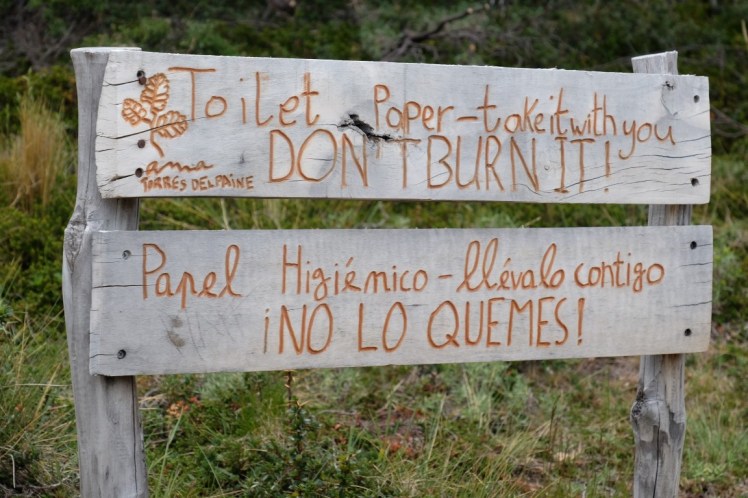 Toilet Paper-take it with you
DON'T BURN IT!
ama
TORRES DEL PAINE
Papel Higiénico-llévalo contigo
¡NO LO QUEMES!